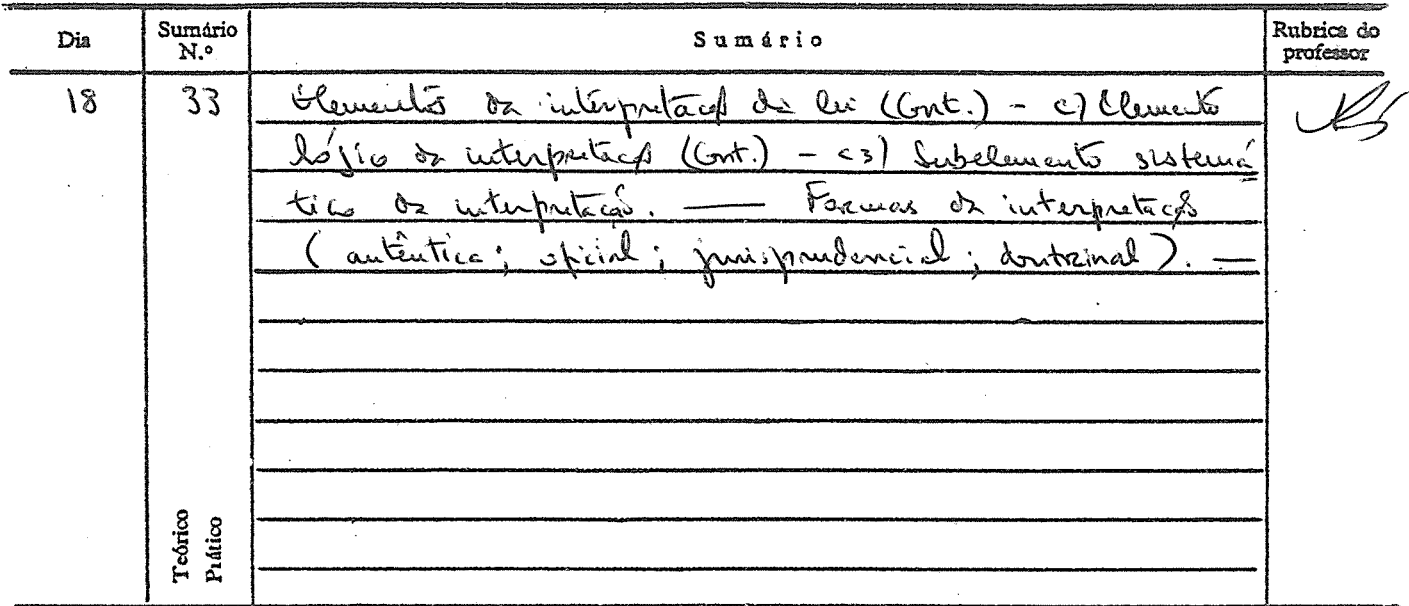 Dia Sumário N.º Sumário Rubrica do professor
18 33 Elementos da interpretação da lei (Cont.) - c) Elemento
lógico da interpretação (Cont.) - c3) Subelemento sistemá
tico da interpretação. — Formas da interpretação
(autêntica; oficial; jurisprudencial; doutrinal). —
Teórico
Prático